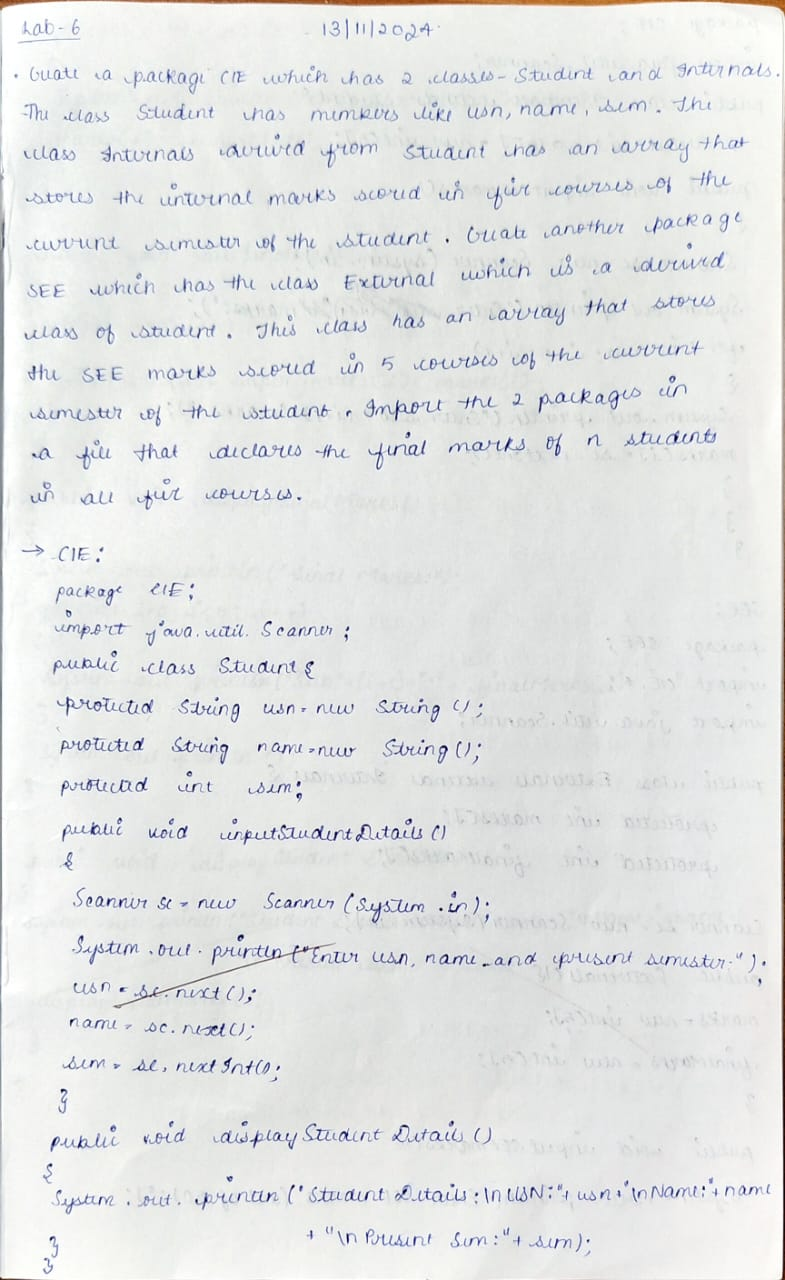 Lab-6 13/11/2024
• Create a package CIE which has 2 classes - Student and Internals.
The class Student has members like usn, name, sem. The
class Internals derived from Student has an array that
stores the internal marks scored in five courses of the
current semester of the student. Create another package
SEE which has the class External which is a derived
class of student. This class has an array that stores
the SEE marks scored in 5 courses of the current
semester of the student. Import the 2 packages in
a file that declares the final marks of n students
in all five courses.
→ CIE:
package CIE;
import java.util.Scanner;
public class Student {
protected String usn = new String ();
protected String name = new String ();
protected int sem;
public void inputStudentDetails ()
{
Scanner sc = new Scanner (System.in);
System.out.println ("Enter usn, name and present semester.");
usn = sc.next ();
name = sc.next ();
sem = sc.nextInt ();
}
public void displayStudentDetails ()
{
System.out.println ("Student Details:\nUSN:"+ usn + "\nName:"+ name
+ "\n Present Sem:"+ sem);
}
}